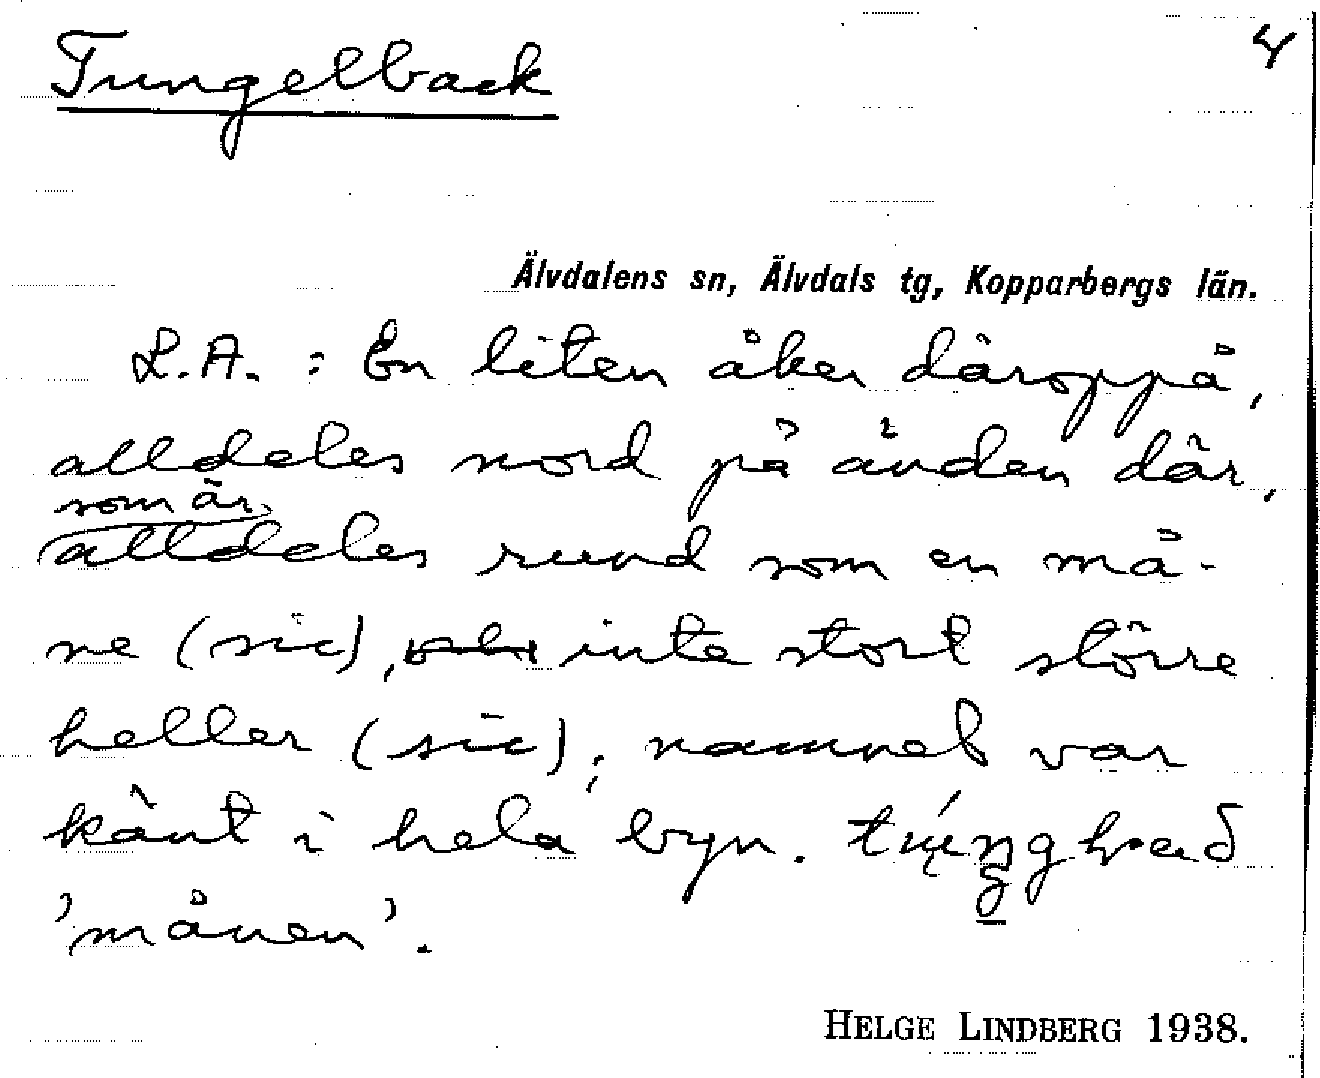 Tungelback
4
Älvdalens sn, Älvdals tg, Kopparbergs län.
L.A. : En liten åker däroppå,
alldeles nord på änden där,
som är
alldeles rund som en må-
ne (sic), inte stort större
heller (sic); namnet var
känt i hela byn.
'månen'.
HELGE LINDBERG 1938.